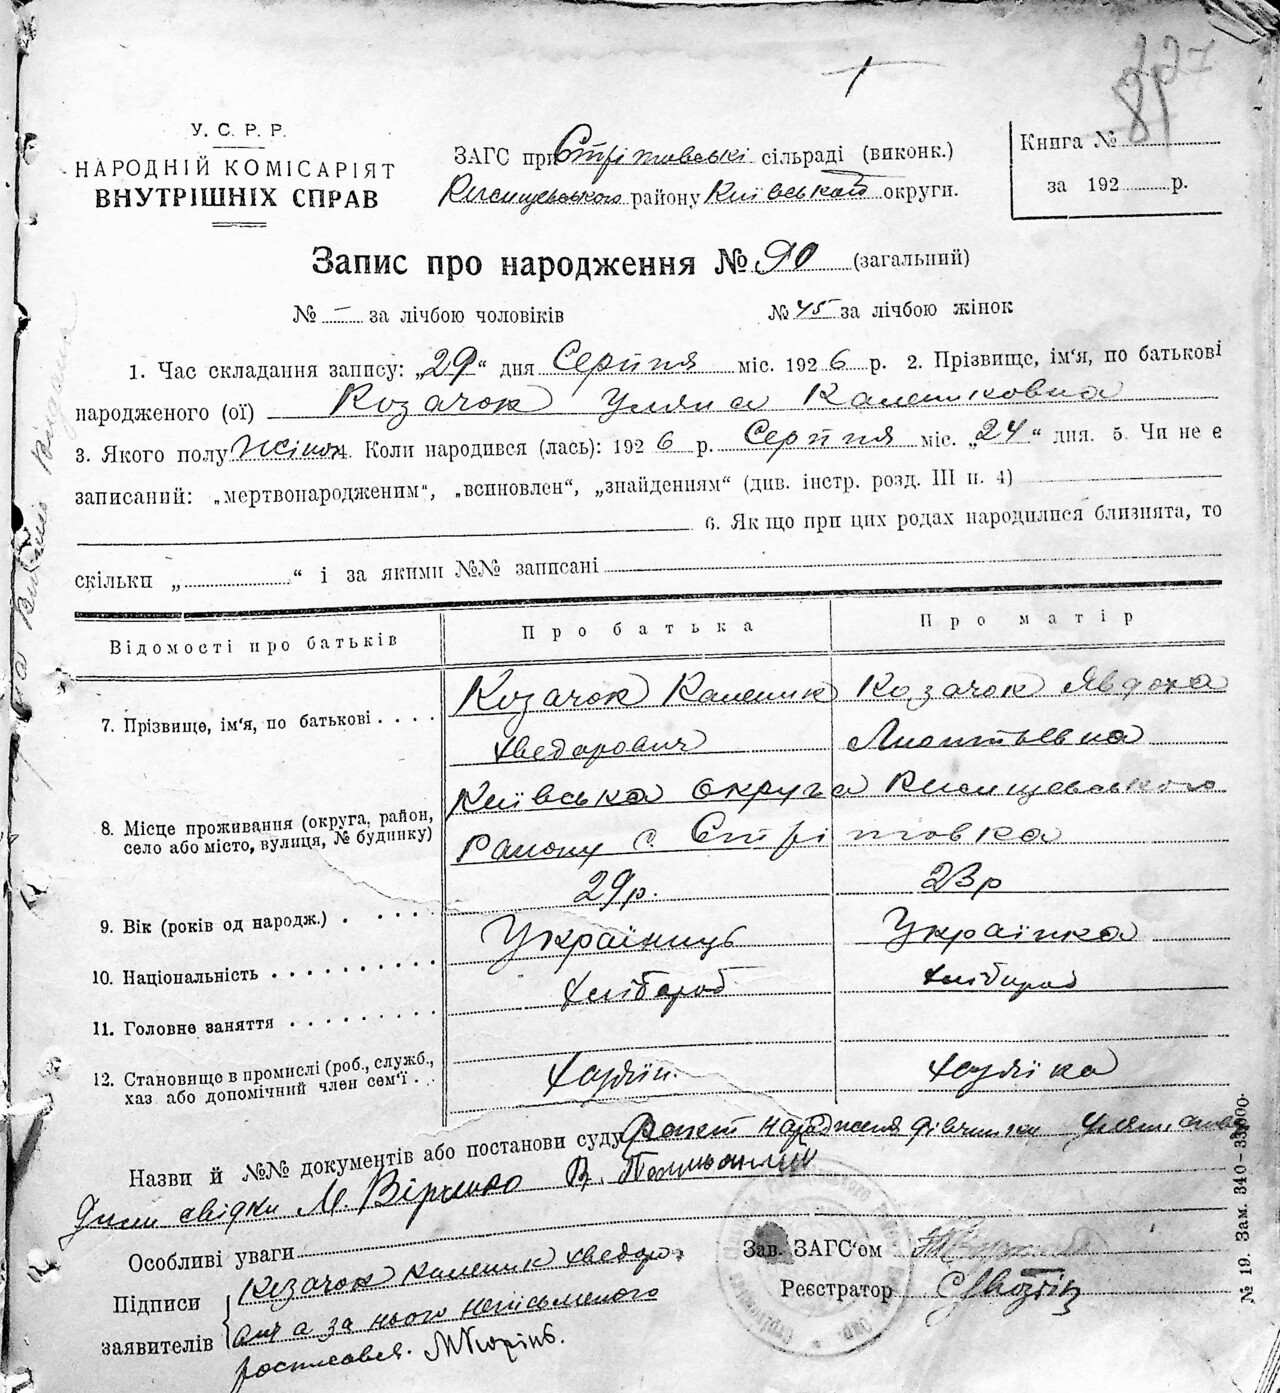 У. С. Р. Р.
НАРОДНІЙ КОМІСАРІЯТ
ВНУТРІШНІХ СПРАВ
ЗАГС при Стрітовські сільраді (виконк.)
Кагарлицького району Київської округи.
Книга №
за 192 р.
Запис про народження № 90 (загальний)
№ – за лічбою чоловіків
№ 45 за лічбою жінок
1. Час складання запису: „29“ дня Серпня міс. 1926 р. 2. Прізвище, ім‘я, по батькові
народженого (ої) Козачок Уляна Калениковна
3. Якого полу Жіноч. Коли народився (лась): 1926 р. Серпня міс. „24“ дня. 5. Чи не є
записаний: „мертвонародженим“, „всиновлен“, „знайденням“ (див. інстр. розд. III п. 4)
6. Якщо при цих родах народилися близнята, то
скільки „ “ і за якими №№ записані
Відомості про батьків
Про батька
Про матір
7. Прізвище, ім‘я, по батькові
Козачок Каленик
Хведорович
Козачок Явдоха
8. Місце проживання (округа, район,
село або місто, вулиця, № будинку)
Київська округа
Району с. Стрітовка
9. Вік (років од народж.)
29р.
23р
10. Національність
Українець
Українка
11. Головне заняття
Хлібороб
Хлібороб
12. Становище в промислі (роб., служб.,
хаз. або допомічний член сем‘ї
Хазяїн.
Хазяїка
Назви й №№ документів або постанови суду Факт народження дівчинки
свідки М. Вірченко В.
Особливі уваги
Підписи
заявителів
Козачок Каленик Хведоро
вич а за нього неписьменого
росписався.
Зав. ЗАГС‘ом
Реєстратор
№ 19. Зам. 340-